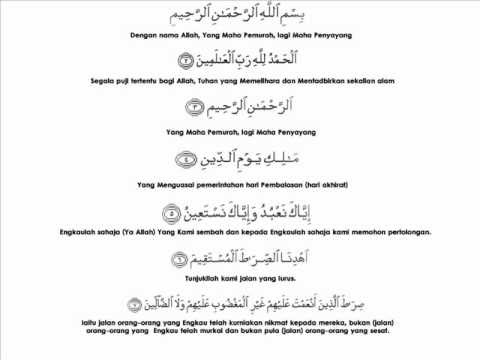 بِسْمِ اللَّهِ الرَّحْمَـٰنِ الرَّحِيمِ
Dengan nama Allah, Yang Maha Pemurah, lagi Maha Penyayang
الْحَمْدُ لِلَّهِ رَبِّ الْعَـٰلَمِينَ ﴿٢﴾
Segala puji tertentu bagi Allah, Tuhan yang Memelihara dan Mentadbirkan sekalian alam
الرَّحْمَـٰنِ الرَّحِيمِ ﴿٣﴾
Yang Maha Pemurah, lagi Maha Penyayang
مَـٰلِكِ يَوْمِ الدِّينِ ﴿٤﴾
Yang Menguasai pemerintahan hari Pembalasan (hari akhirat)
إِيَّاكَ نَعْبُدُ وَإِيَّاكَ نَسْتَعِينُ ﴿٥﴾
Engkaulah sahaja (Ya Allah) Yang Kami sembah dan kepada Engkaulah sahaja kami memohon pertolongan.
اهْدِنَا الصِّرَٰطَ الْمُسْتَقِيمَ ﴿٦﴾
Tunjukilah kami jalan yang lurus.
صِرَٰطَ الَّذِينَ أَنْعَمْتَ عَلَيْهِمْ غَيْرِ الْمَغْضُوبِ عَلَيْهِمْ وَلَا الضَّالِّينَ ﴿٧﴾
Iaitu jalan orang-orang yang Engkau telah kurniakan nikmat kepada mereka, bukan (jalan)
orang-orang yang Engkau telah murkai dan bukan pula (jalan) orang-orang yang sesat.